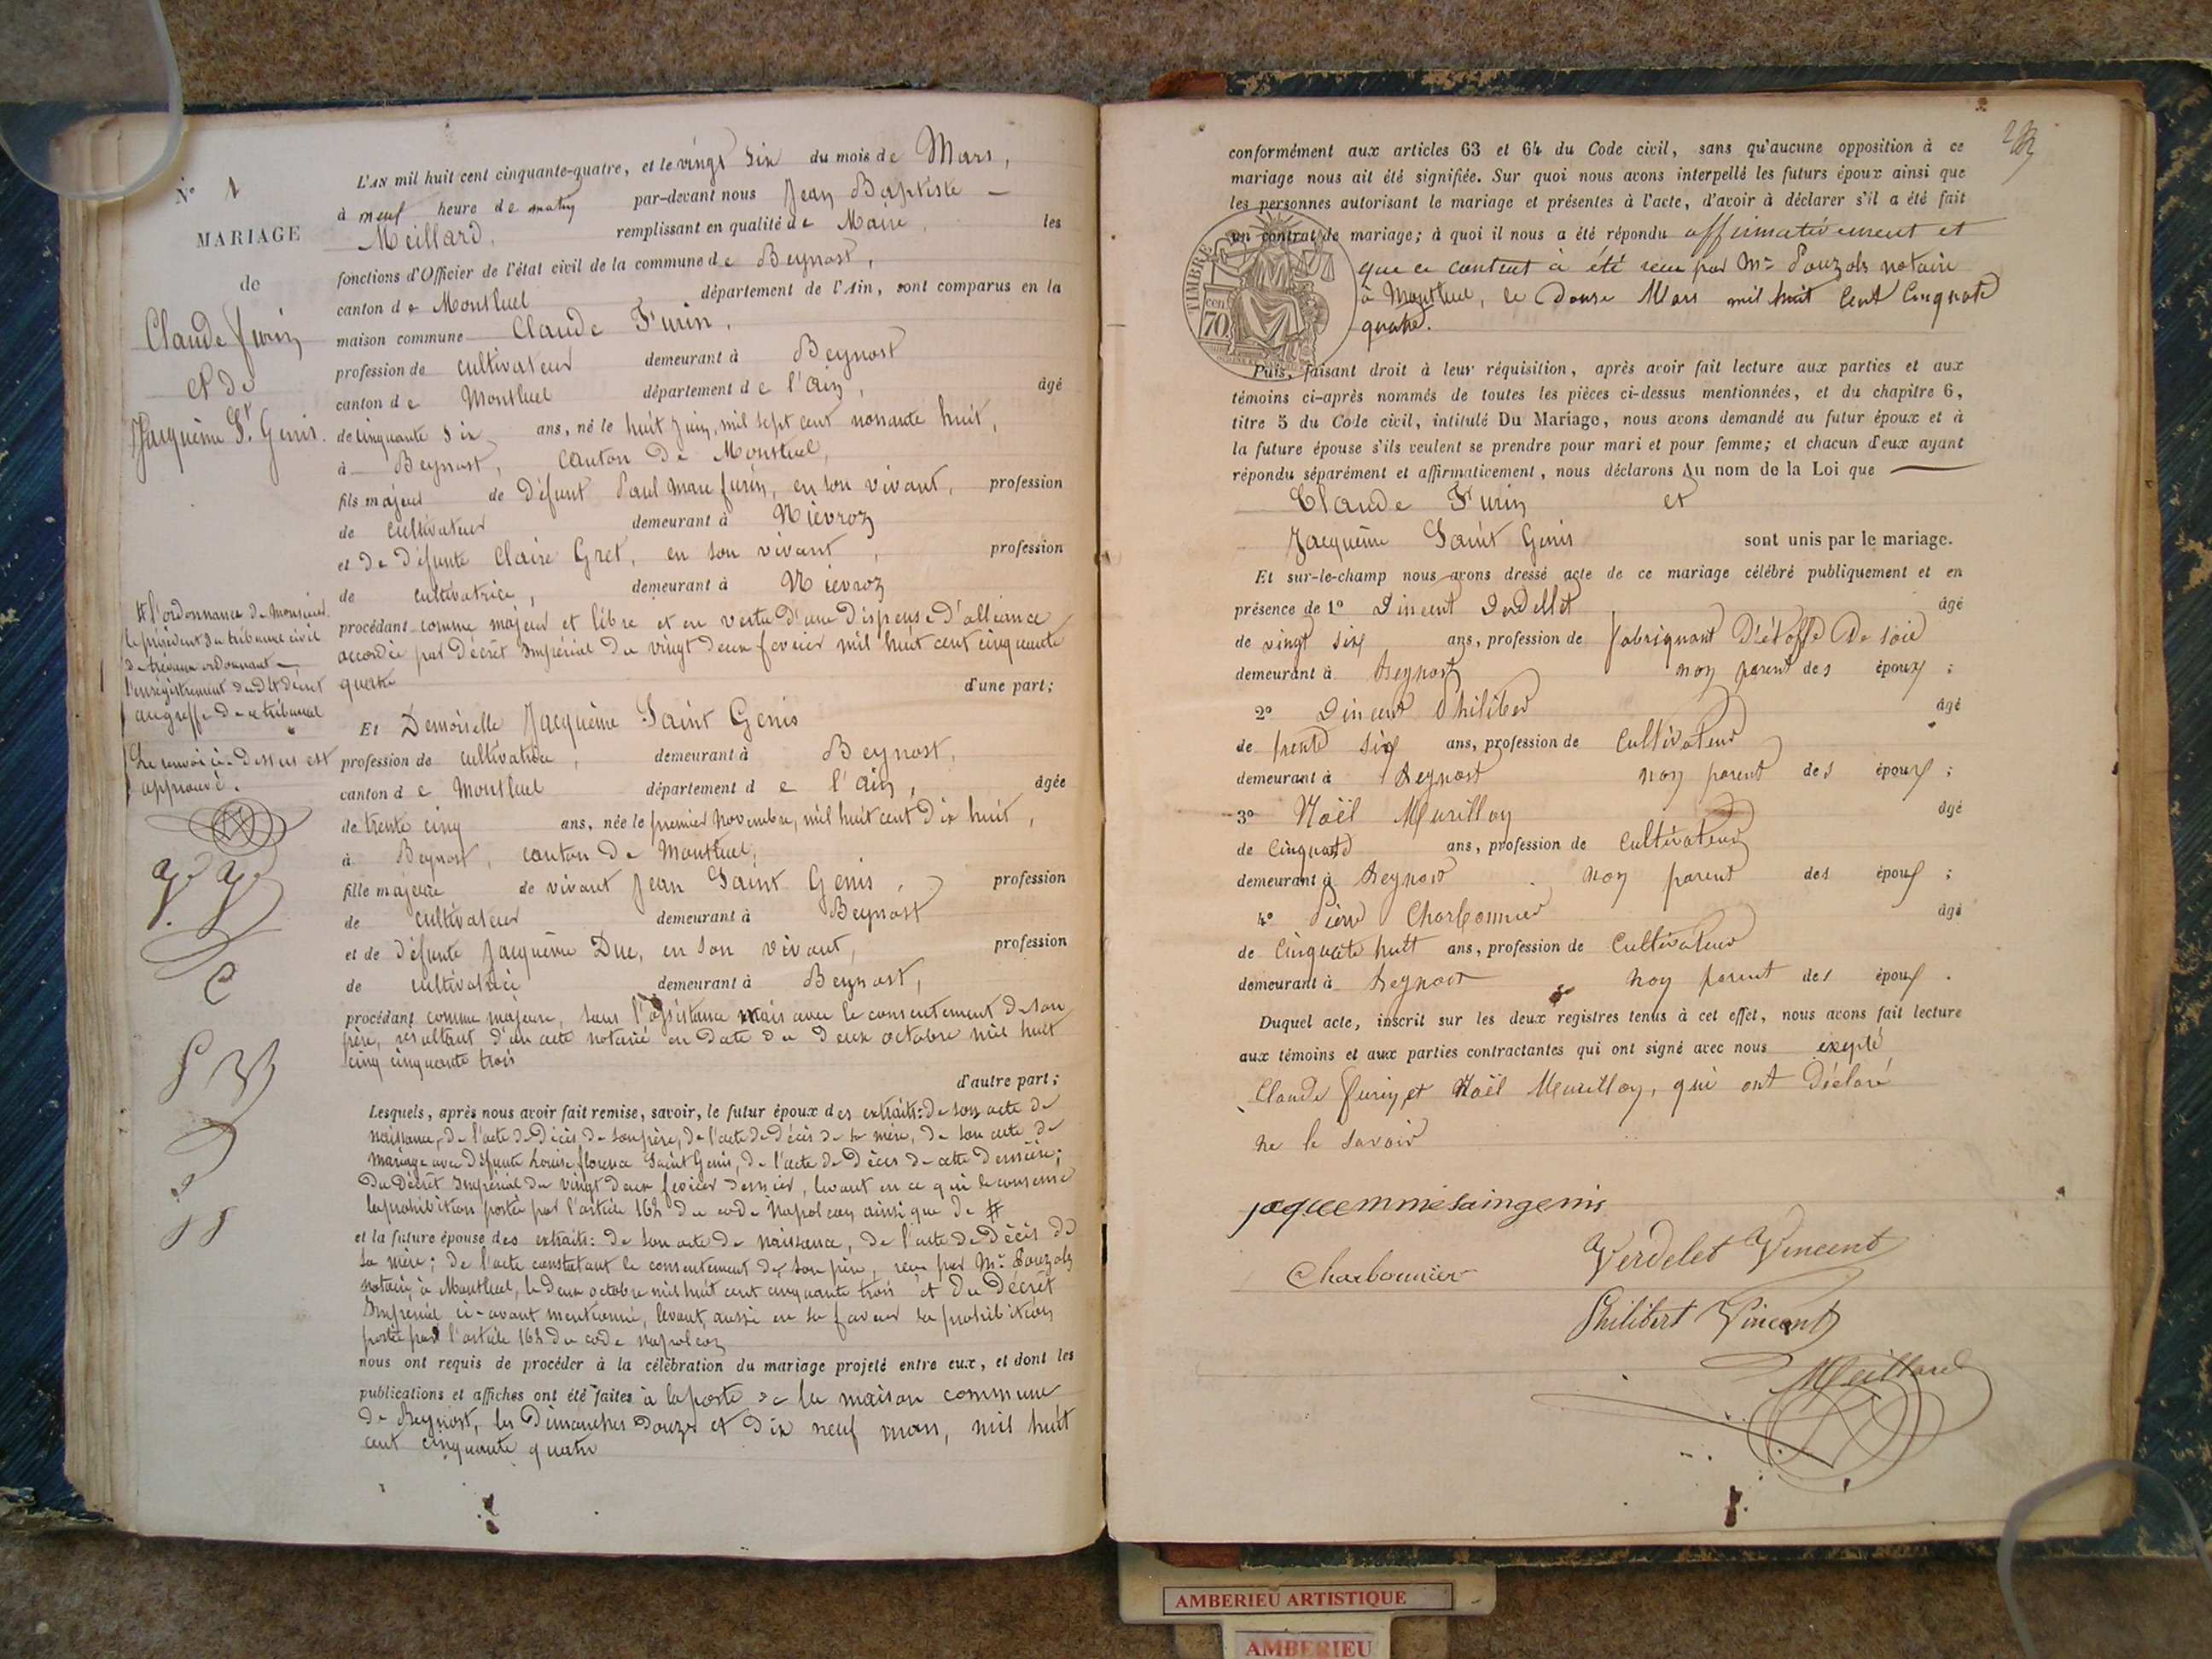 N° 1
MARIAGE
de
Claude furin
et de
Jacquème St. Genis.
L'AN mil huit cent cinquante-quatre, et le vingt six du mois de Mars,
à neuf heure de matin par-devant nous Jean Baptiste —
Meillard, remplissant en qualité de Maire, les
fonctions d'Officier de l'état civil de la commune de Beynost,
canton de Montluel département de l'Ain, sont comparus en la
maison commune Claude Furin,
profession de cultivateur demeurant à Beynost
canton de Montluel département de l'ain, âgé
de cinquante six ans, né le huit juin, mil sept cent nonante huit,
à Beynost, canton de Montluel,
fils majeur de défunt Paul Marc furin, en son vivant, profession
de cultivateur demeurant à Nievroz
et de défunte Claire Gret, en son vivant, profession
de cultivatrice, demeurant à Nievroz
procédant comme majeur et libre et en vertu d'une dispense d'alliance
accordée par décret Impérial du vingt deux fevrier mil huit cent cinquante
quatre d'une part;
# l'ordonnance de monsieur
le président du tribunal civil
de trévoux ordonnant
l'enregistrement du dit décret
au greffe de ce tribunal
Le renvoi ci-dessus est
approuvé.
Et Demoiselle Jacquème Saint Genis
profession de cultivatrice, demeurant à Beynost,
canton de Montluel département de l'ain, âgée
de trente cinq ans, née le premier novembre, mil huit cent dix huit,
à Beynost, canton de Montluel,
fille majeure de vivant Jean Saint Genis, profession
de cultivateur demeurant à Beynost
et de défunte Jacquème Duc, en son vivant, profession
de cultivatrice demeurant à Beynost,
procédant comme majeure, sans l'assistance mais avec le consentement de son
père, résultant d'un acte notarié en date du deux octobre mil huit
cinq cinquante trois
d'autre part;
Lesquels, après nous avoir fait remise, savoir, le futur époux des extraits: de son acte de
naissance, de l'acte de décès de son père, de l'acte de décès de sa mère, de son acte de
mariage avec défunte Louise florence Saint Genis, de l'acte de décès de cette dernière;
du Décret Impérial du vingt deux fevrier dernier, levant en ce qui le concerne
la prohibition portée par l'article 162 du code Napoléon ainsi que de #
et la future épouse des extraits: de son acte de naissance, de l'acte de décès de
sa mère; de l'acte constatant le consentement de son père, reçu par Me Pouzols
notaire à Montluel, le deux octobre mil huit cent cinquante trois et du Décret
Impérial ci-avant mentionné, levant aussi en sa faveur la prohibition
portée par l'article 162 du code napoléon
nous ont requis de procéder à la célébration du mariage projeté entre eux, et dont les
publications et affiches ont été faites à la porte de la maison commune
de Beynost, les Dimanches douze et dix neuf mars, mil huit
cent cinquante quatre
conformément aux articles 63 et 64 du Code civil, sans qu'aucune opposition à ce
mariage nous ait été signifiée. Sur quoi nous avons interpellé les futurs époux ainsi que
les personnes autorisant le mariage et présentes à l'acte, d'avoir à déclarer s'il a été fait
un contrat de mariage; à quoi il nous a été répondu affirmativement et
que ce contrat à été reçu par Me Pouzols notaire
à Montluel, le Douse Mars mil huit Cent Cinquate
quatre.
TIMBRE
cen
70
Puis, faisant droit à leur réquisition, après avoir fait lecture aux parties et aux
témoins ci-après nommés de toutes les pièces ci-dessus mentionnées, et du chapitre 6,
titre 5 du Code civil, intitulé Du Mariage, nous avons demandé au futur époux et à
la future épouse s'ils veulent se prendre pour mari et pour femme; et chacun d'eux ayant
répondu séparément et affirmativement, nous déclarons Au nom de la Loi que
Claude Furin et
Jacquème Saint Genis sont unis par le mariage.
Et sur-le-champ nous avons dressé acte de ce mariage célébré publiquement et en
présence de 1° Vincent Verdellet âgé
de vingt six ans, profession de fabriquant d'étoffe de soie
demeurant à Beynost non parent des époux;
2° Vincent Philiber âgé
de trente six ans, profession de Cultivateur
demeurant à Beynost non parent des époux;
3° Noël Meurillon âgé
de Cinquate ans, profession de Cultivateur
demeurant à Beynost non parent des époux;
4° Pierre Charbonnier âgé
de Cinquate huit ans, profession de Cultivateur
demeurant à Beynost non parent des époux.
Duquel acte, inscrit sur les deux registres tenus à cet effet, nous avons fait lecture
aux témoins et aux parties contractantes qui ont signé avec nous exepté
Claude furin, et Noël Meurillon, qui ont déclaré
ne le savoir
jaquemmesaingenis
Verdelet Vincent
Charbonnier
Philibert Vincent
Meillard
AMBERIEU ARTISTIQUE
AMBERIEU